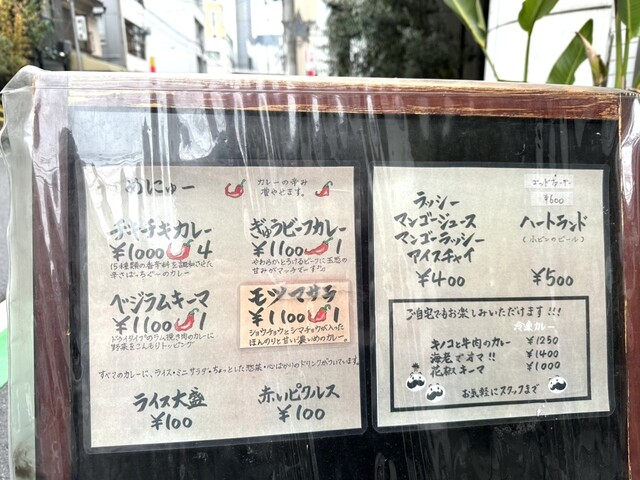 めにゅー
カレーの辛み
増やせます。
チャーチキカレー
¥1000 4
15種類の香辛料を調和させた
辛さばっちぐーのカレー
ぎゅうビーフカレー
¥1100 1
やわらかとろけるビーフに玉葱の
甘みがマッチでーす!!
ベジラムキーマ
¥1100 1
ドライタイプのラム挽き肉のカレーに
野菜をこんもりトッピング
モツマサラ
¥1100 1
ショウチョウとシマチョウが入った
ほんのりと甘い濃いめのカレー。
すべてのカレーに、ライス・ミニサラダ・ちょっとした惣菜・心ばかりのドリンクがついています。
ライス大盛
¥100
赤いピクルス
¥100
ラッシー
マンゴージュース
マンゴーラッシー
アイスチャイ
¥400
ゴッドファーザー
¥600
ハートランド
(小ビンのビール)
¥500
ご自宅でもお楽しみいただけます!!!
冷凍カレー
キノコと牛肉のカレー ¥1250
海老でオマ!! ¥1400
花椒キーマ ¥1000
お気軽にスタッフまで